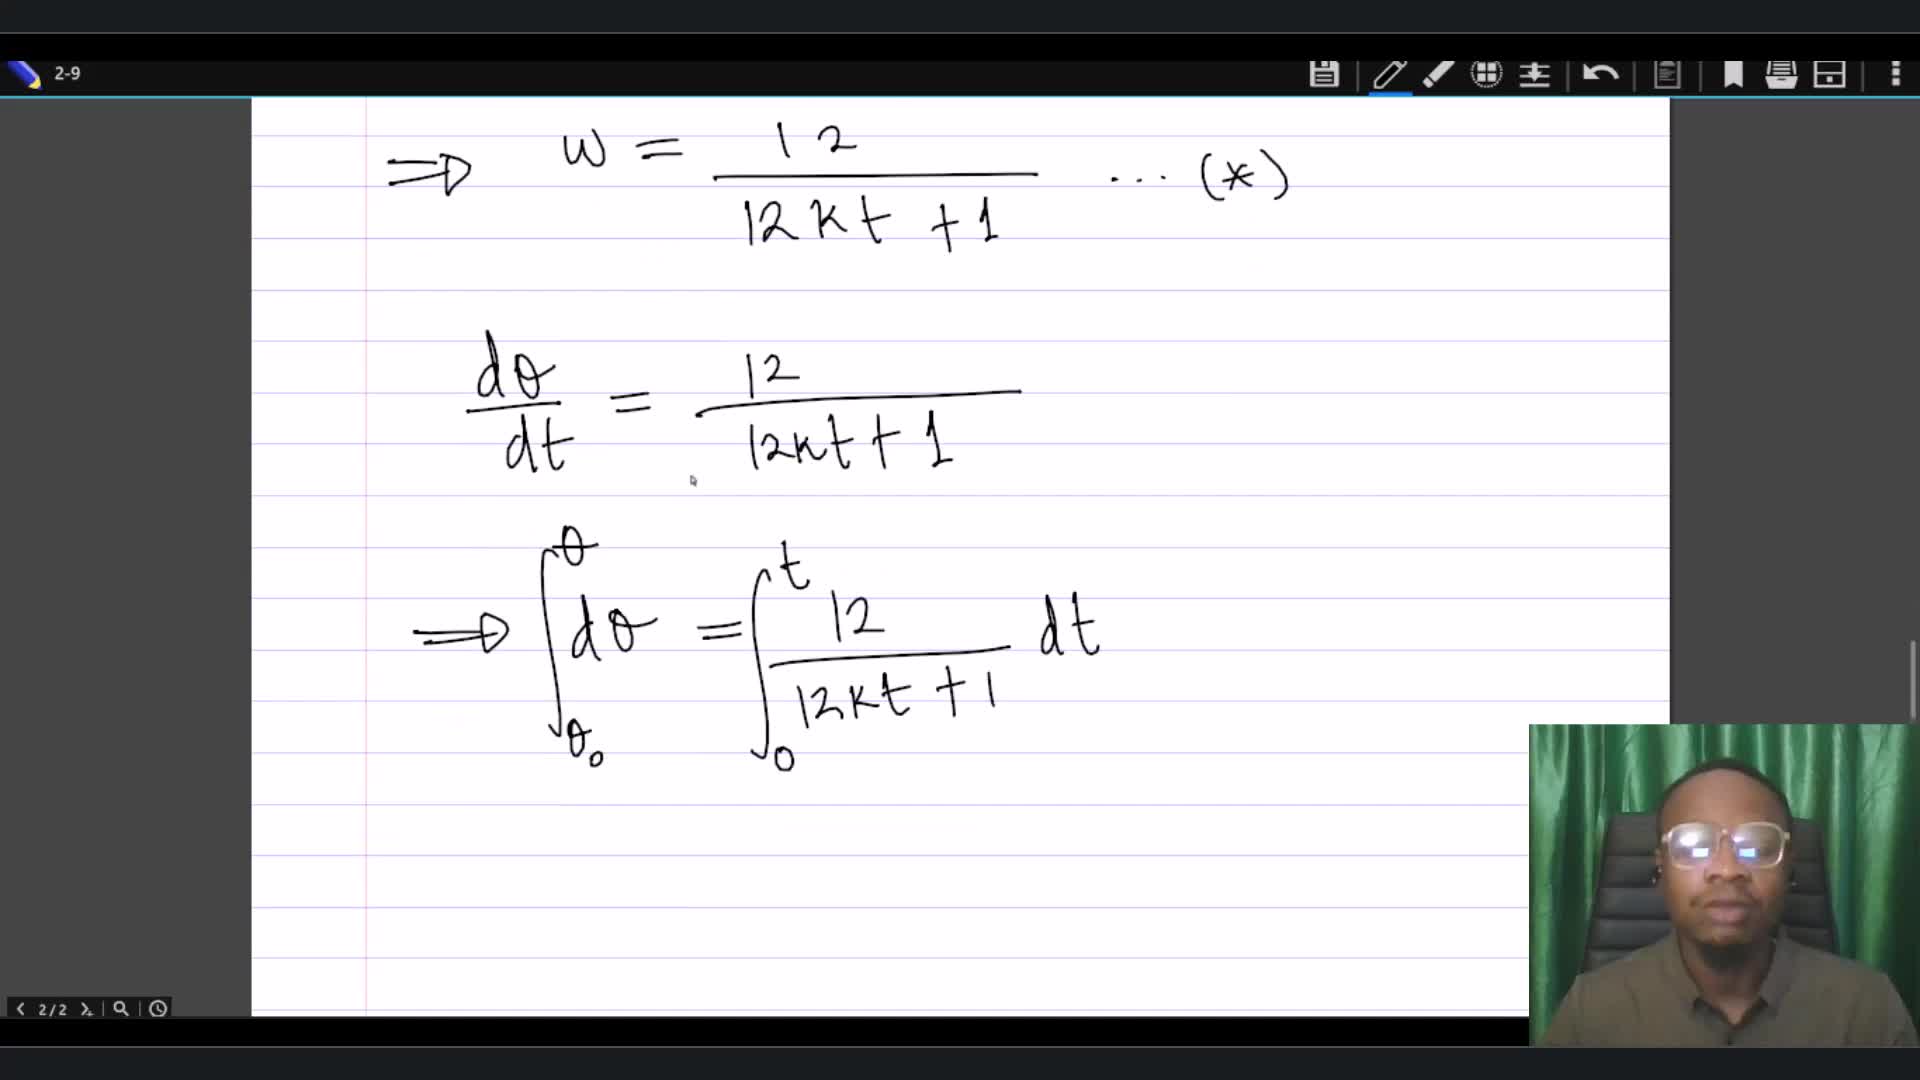 2-9
⇒ w = 12 / (12kt + 1) ... (*)
dθ/dt = 12 / (12kt + 1)
⇒ ∫_θ₀^θ dθ = ∫_0^t 12 / (12kt + 1) dt
2/2